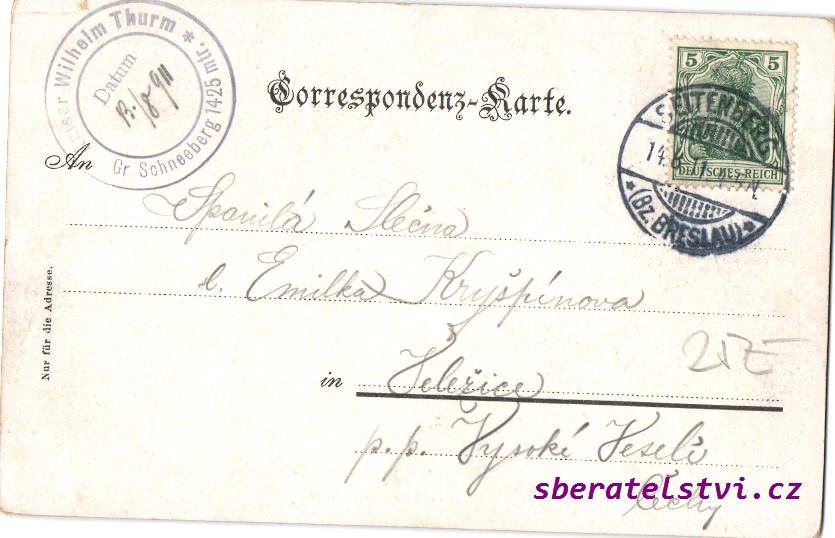 Kaiser Wilhelm Thurm * Gr Schneeberg 1425 mtr.
Datum
13/8 911
Correspondenz-Karte.
5 5
DEUTSCHES REICH
SEITENBERG
* (BZ. BRESLAU) *
An
Spanilá Slečna
Emilka Kryšpínova
in Velešice
p. p. Vysoké Veselé
Čechy
Nur für die Adresse.
sberatelstvi.cz